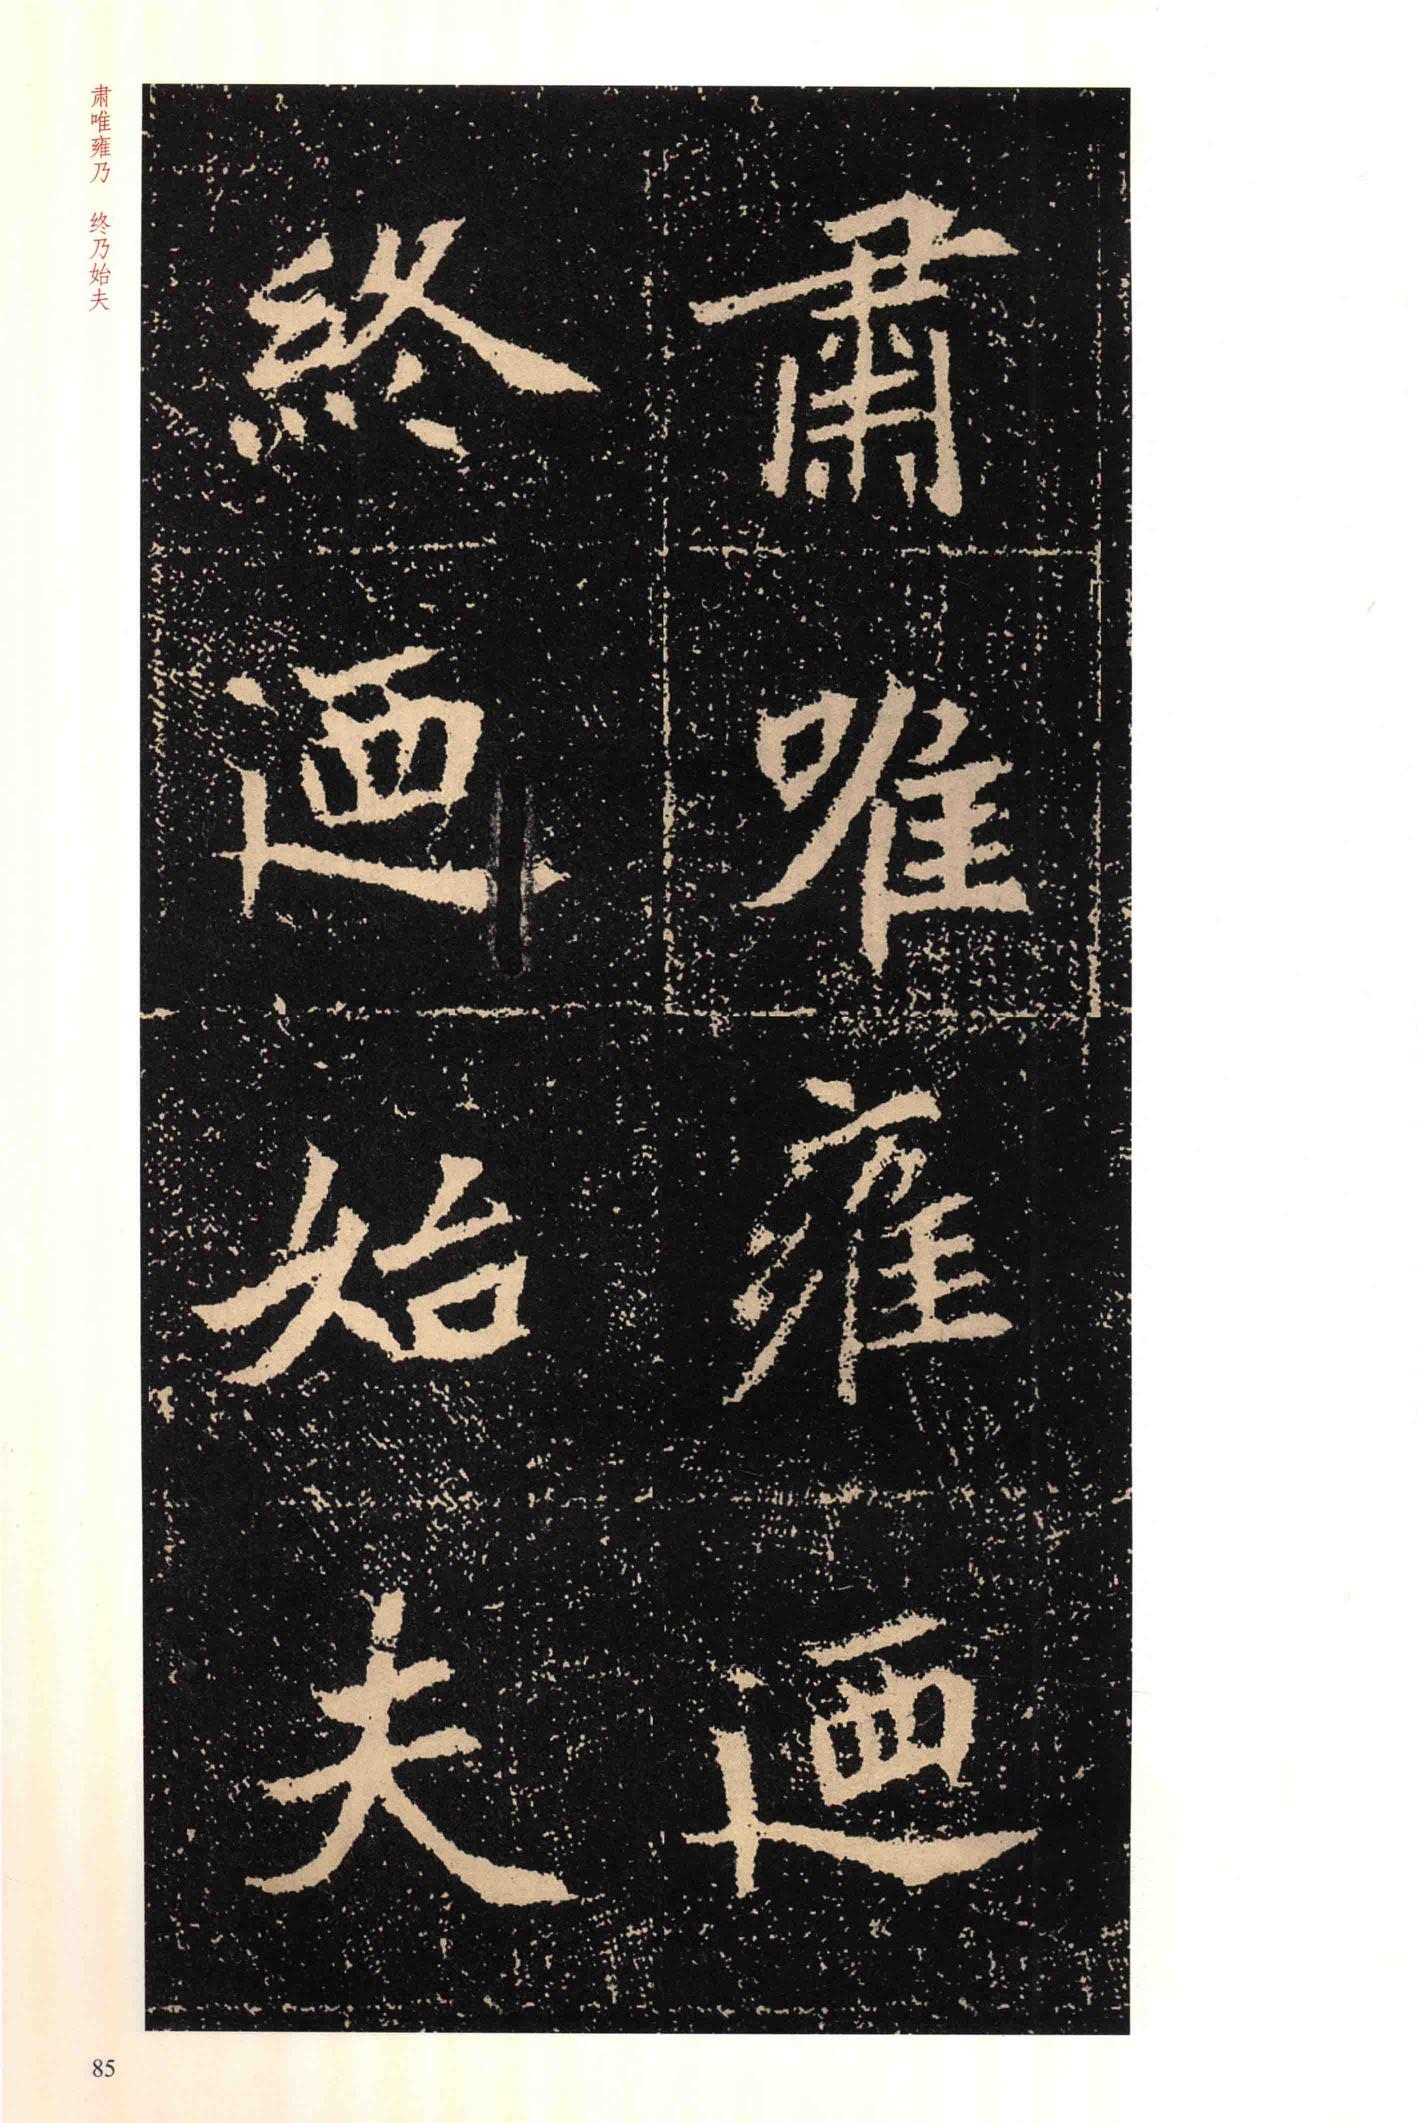 肅唯雍迺
終迺始夫
肃唯雍乃　终乃始夫
85